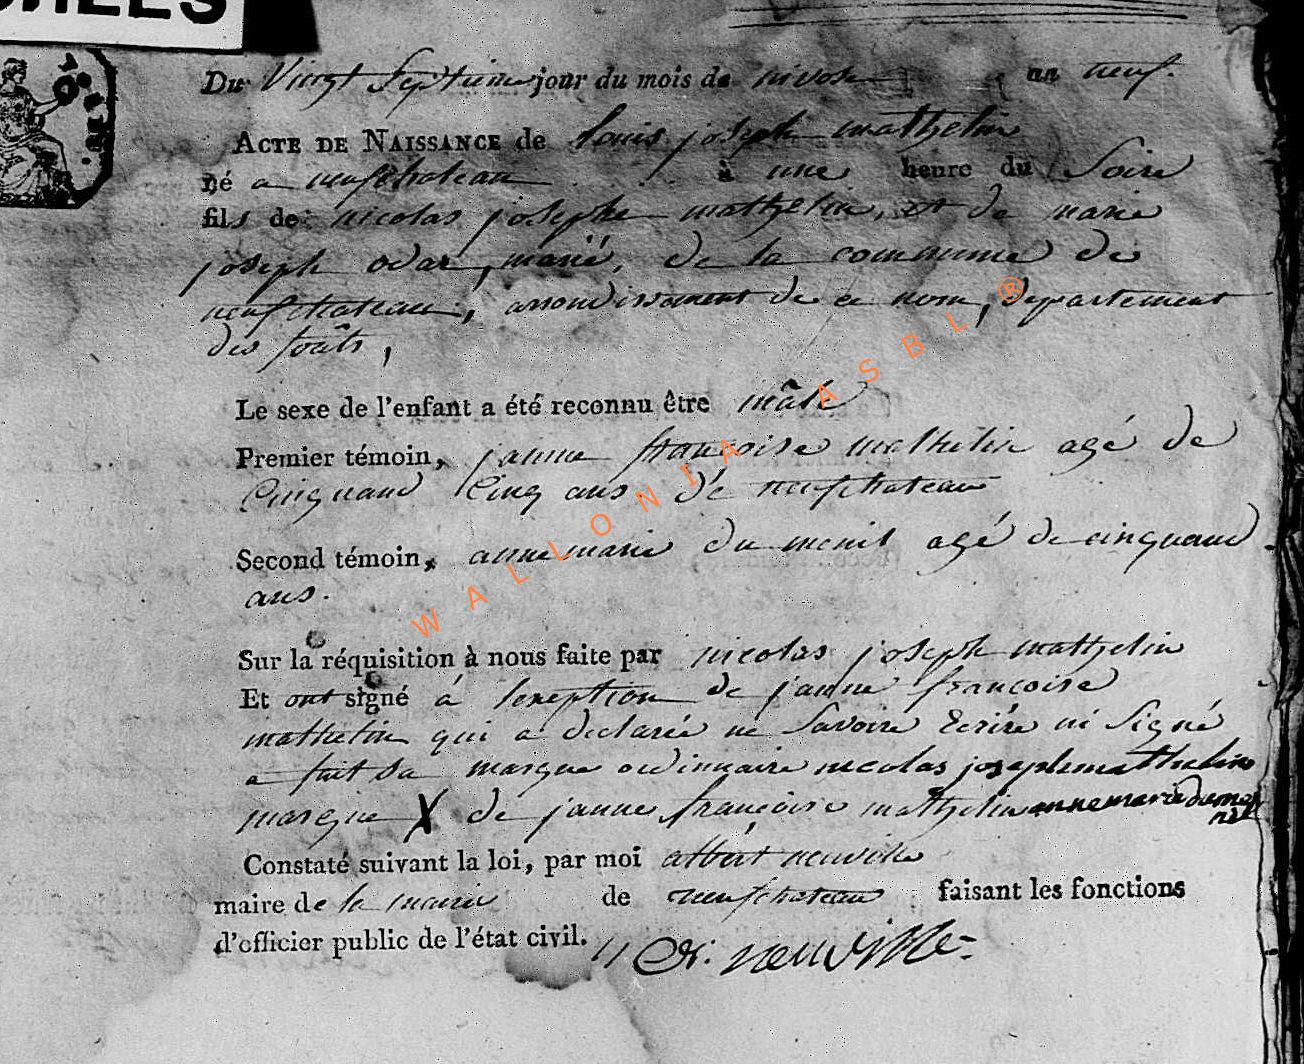 Du Vingt Septieme jour du mois de nivose an neuf.
ACTE DE NAISSANCE de louis joseph mathelin
né a neufchateau à une heure du Soire
fils de nicolas josephe mathelin, et de marie
joseph odar, marié, de la commune de
neufchateau, arrondissement de ce nom, departement
des forêts,
Le sexe de l'enfant a été reconnu être mâle
Premier témoin, janne françoise mathelin agé de
Cinquand Cinq ans dé neufchateau
Second témoin, anne marie du menil agé de cinquand
ans.
WALLONIA ASBL ®
Sur la réquisition à nous faite par nicolas joseph mathelin
Et ont signé á lexeption de janne françoise
mathelin qui a declarée ne Savoire Ecrire ni Signé
a fait sa marque ordinnaire nicolas joseph mathelin
marque X de janne françoise mathelin anne marie dume
nil
Constaté suivant la loi, par moi albert neuville
maire de la mairie de neufchateau faisant les fonctions
d'officier public de l'état civil. neuville